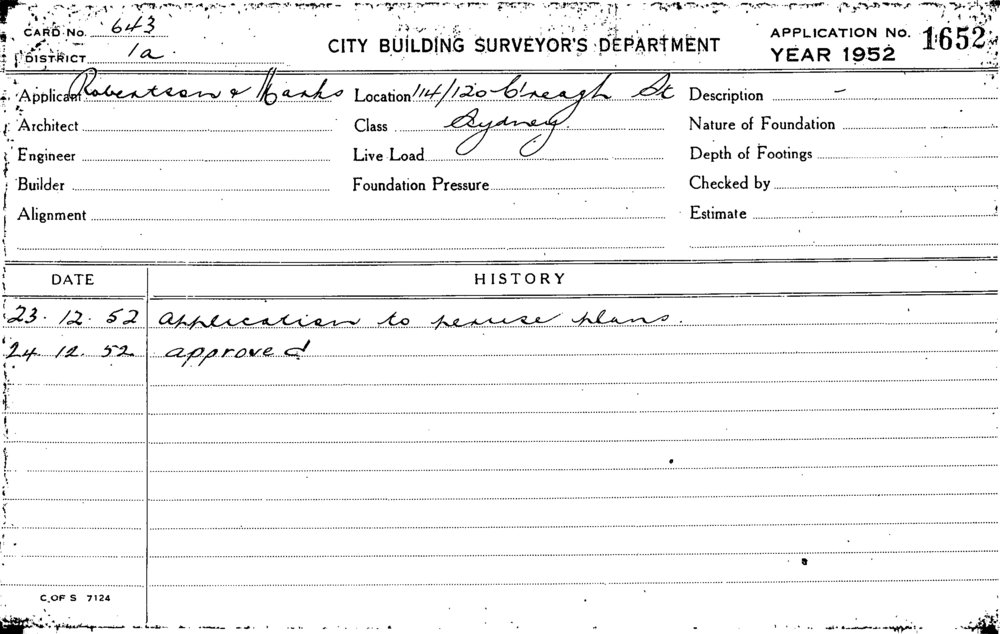 CARD No. 643
DISTRICT 1a.
CITY BUILDING SURVEYOR'S DEPARTMENT
APPLICATION No. 1652
YEAR 1952
Applicant Robertson & Marks Location 114/120 C'reagh St Description –
Architect Class Sydney. Nature of Foundation
Engineer Live Load Depth of Footings
Builder Foundation Pressure Checked by
Alignment Estimate
DATE HISTORY
23. 12. 52 Application to peruse plans.
24. 12. 52 approved
C. OF S 7124